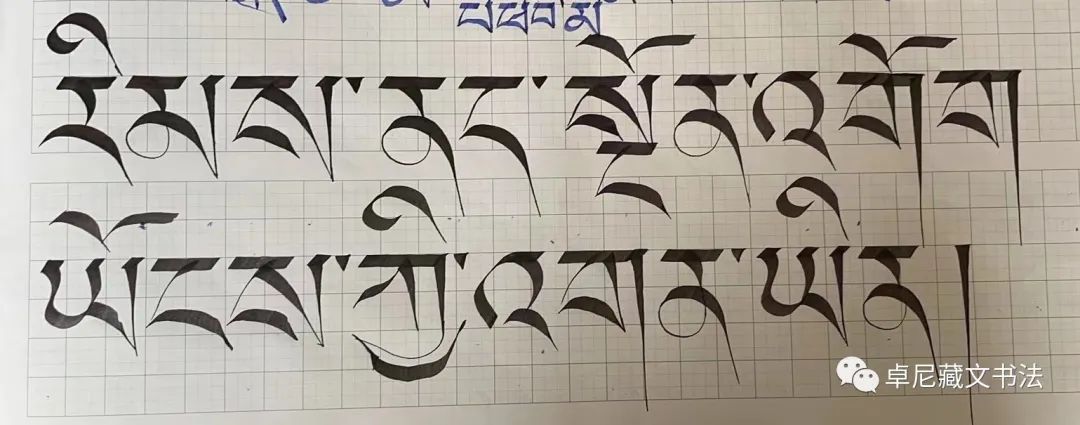 པཕབམ
རིམས་ནད་སྔོན་འགོག
ཡོངས་ཀྱི་འགན་ཡིན།
卓尼藏文书法